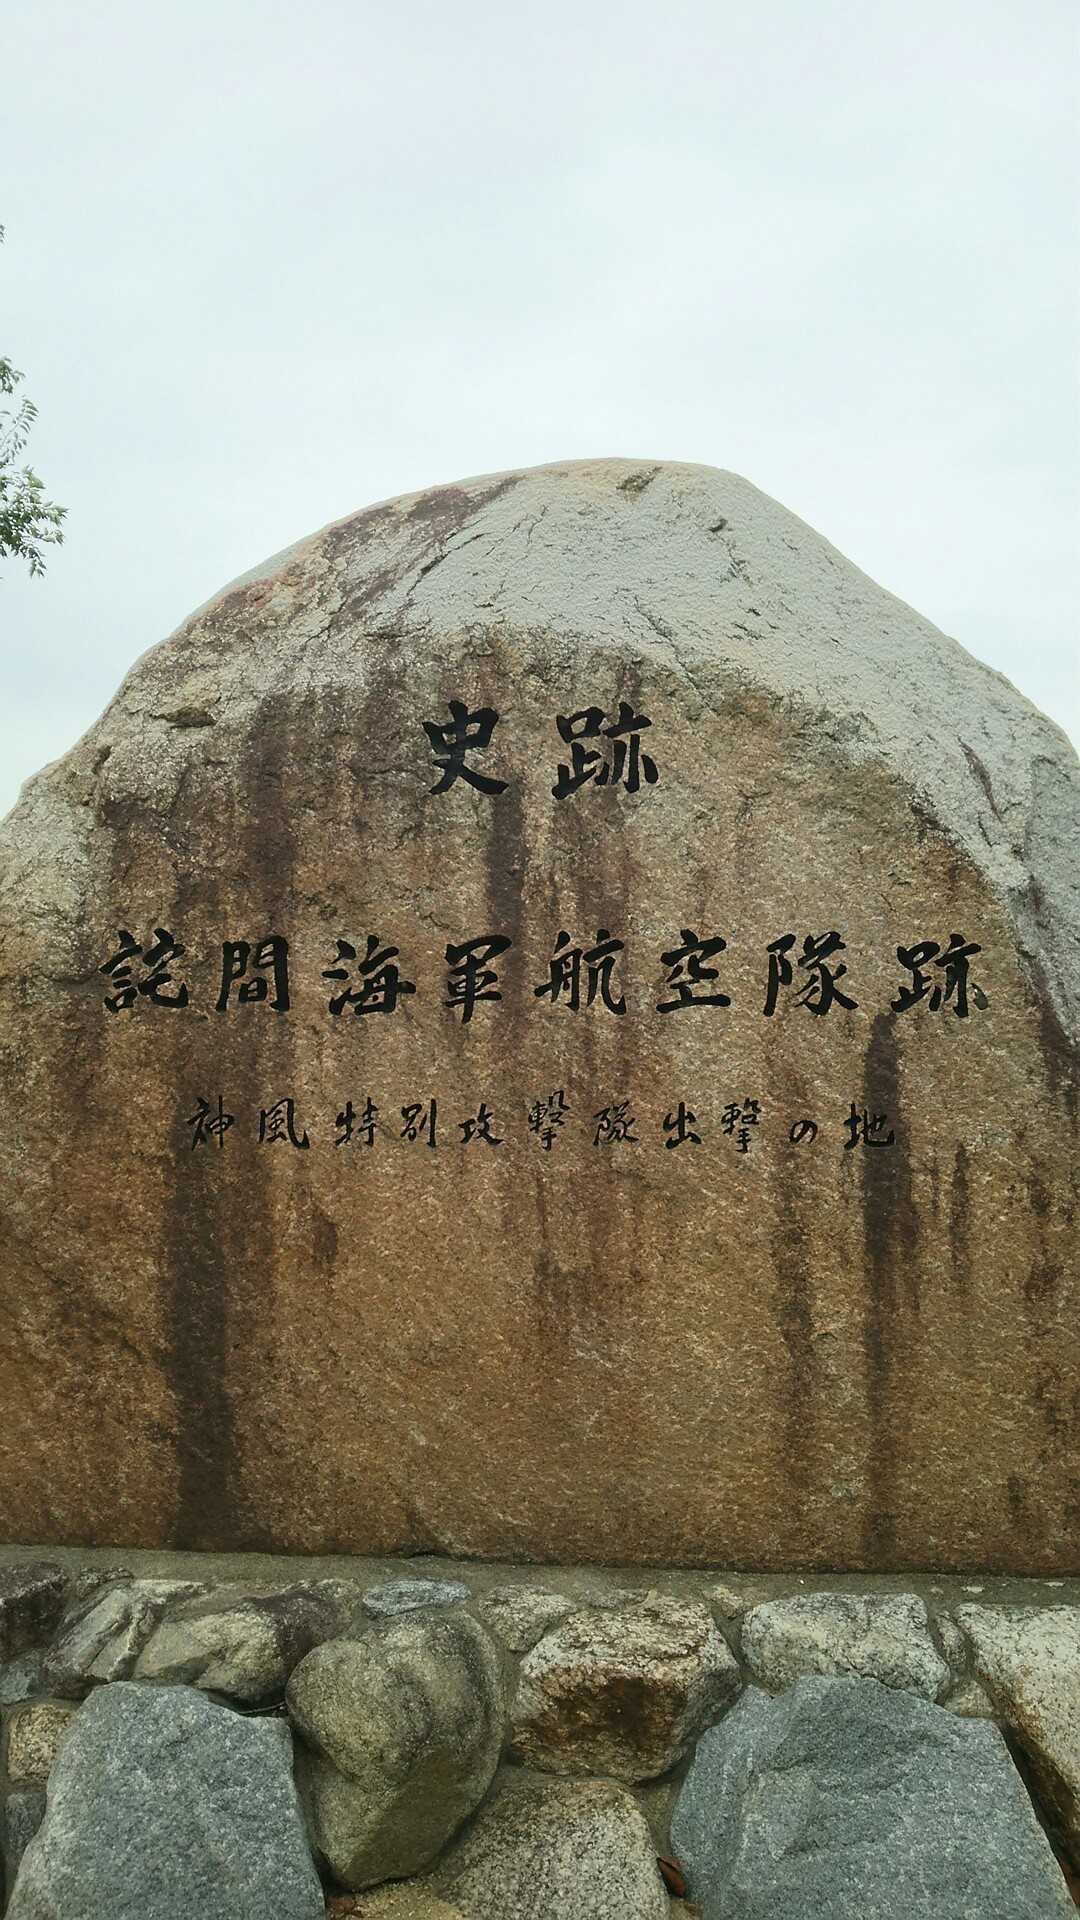 史跡
詫間海軍航空隊跡
神風特別攻撃隊出撃の地